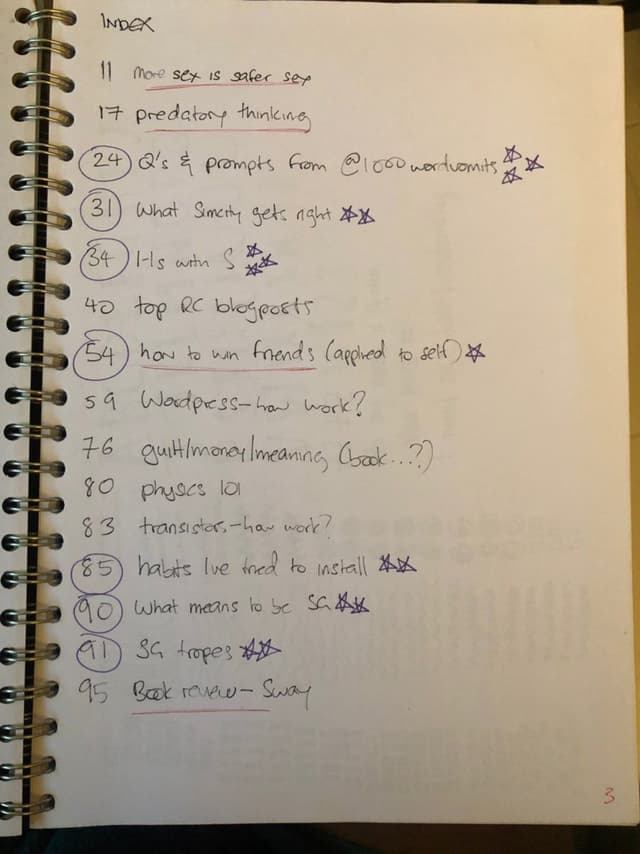 INDEX
11 more sex is safer sex
17 predatory thinking
24 Q's & prompts from @1000wordvomits
31 What Simcity gets right
34 1-1s with S
40 top RC blogposts
54 how to win friends (applied to self)
59 Wordpress-how work?
76 guilt/money/meaning (book...?)
80 physics 101
83 transistors-how work?
85 habits I've tried to install
90 What means to be SG
91 SG tropes
95 Book review- Sway
3